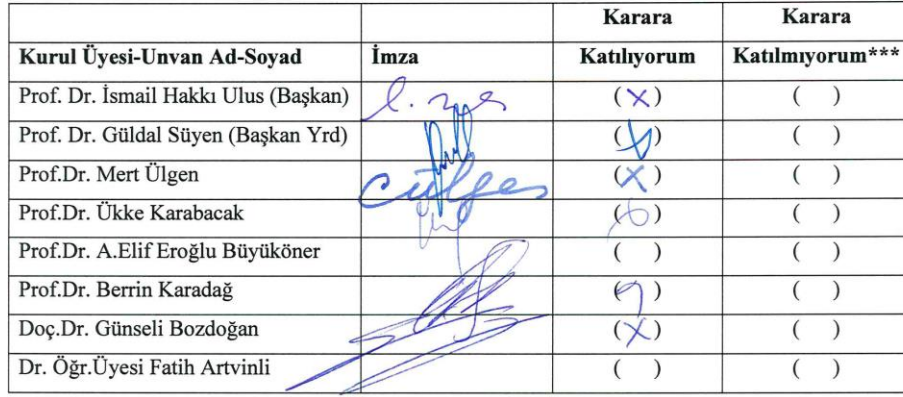 Karara Karara
Kurul Üyesi-Unvan Ad-Soyad İmza Katılıyorum Katılmıyorum***
Prof. Dr. İsmail Hakkı Ulus (Başkan) (X) ( )
Prof. Dr. Güldal Süyen (Başkan Yrd) ( ) ( )
Prof.Dr. Mert Ülgen (X) ( )
Prof.Dr. Ükke Karabacak ( ) ( )
Prof.Dr. A.Elif Eroğlu Büyüköner ( ) ( )
Prof.Dr. Berrin Karadağ ( ) ( )
Doç.Dr. Günseli Bozdoğan (X) ( )
Dr. Öğr.Üyesi Fatih Artvinli ( ) ( )